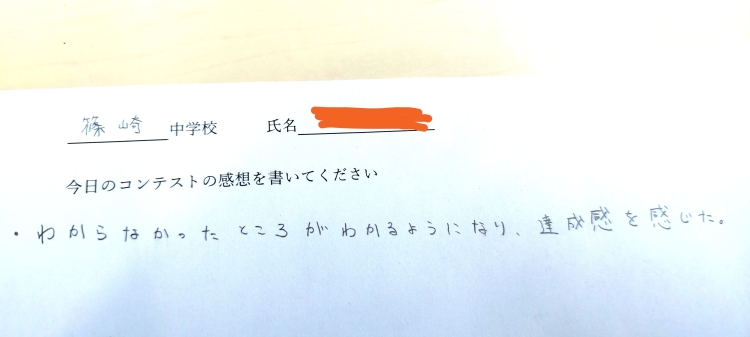 篠崎中学校 氏名
今日のコンテストの感想を書いてください
・わからなかったところがわかるようになり、達成感を感じた。